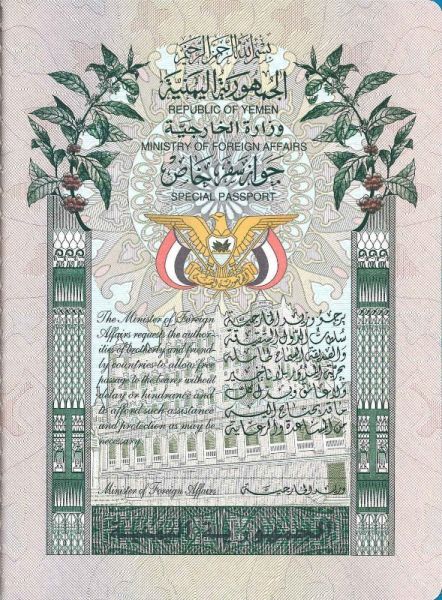 بسم الله الرحمن الرحيم
الجمهورية اليمنية
REPUBLIC OF YEMEN
وزارة الخارجية
MINISTRY OF FOREIGN AFFAIRS
جواز سفر خاص
SPECIAL PASSPORT
الجمهورية اليمنية
The Minister of Foreign
Affairs requests the author-
ities of brotherly and friend-
ly countries to allow free
passage to the bearer without
delay or hindrance and
to afford such assistance
and protection as may be
necessary.
يرجو وزير الخارجية
سلطات الدول الشقيقة
والصديقة السماح لحامله
بحرية المرور بلا تأخير
ولا عائق وبذل كل
ما قد يحتاج إليه
من المساعدة والرعاية
Minister of Foreign Affairs
وزير الخارجية
الجمهورية اليمنية